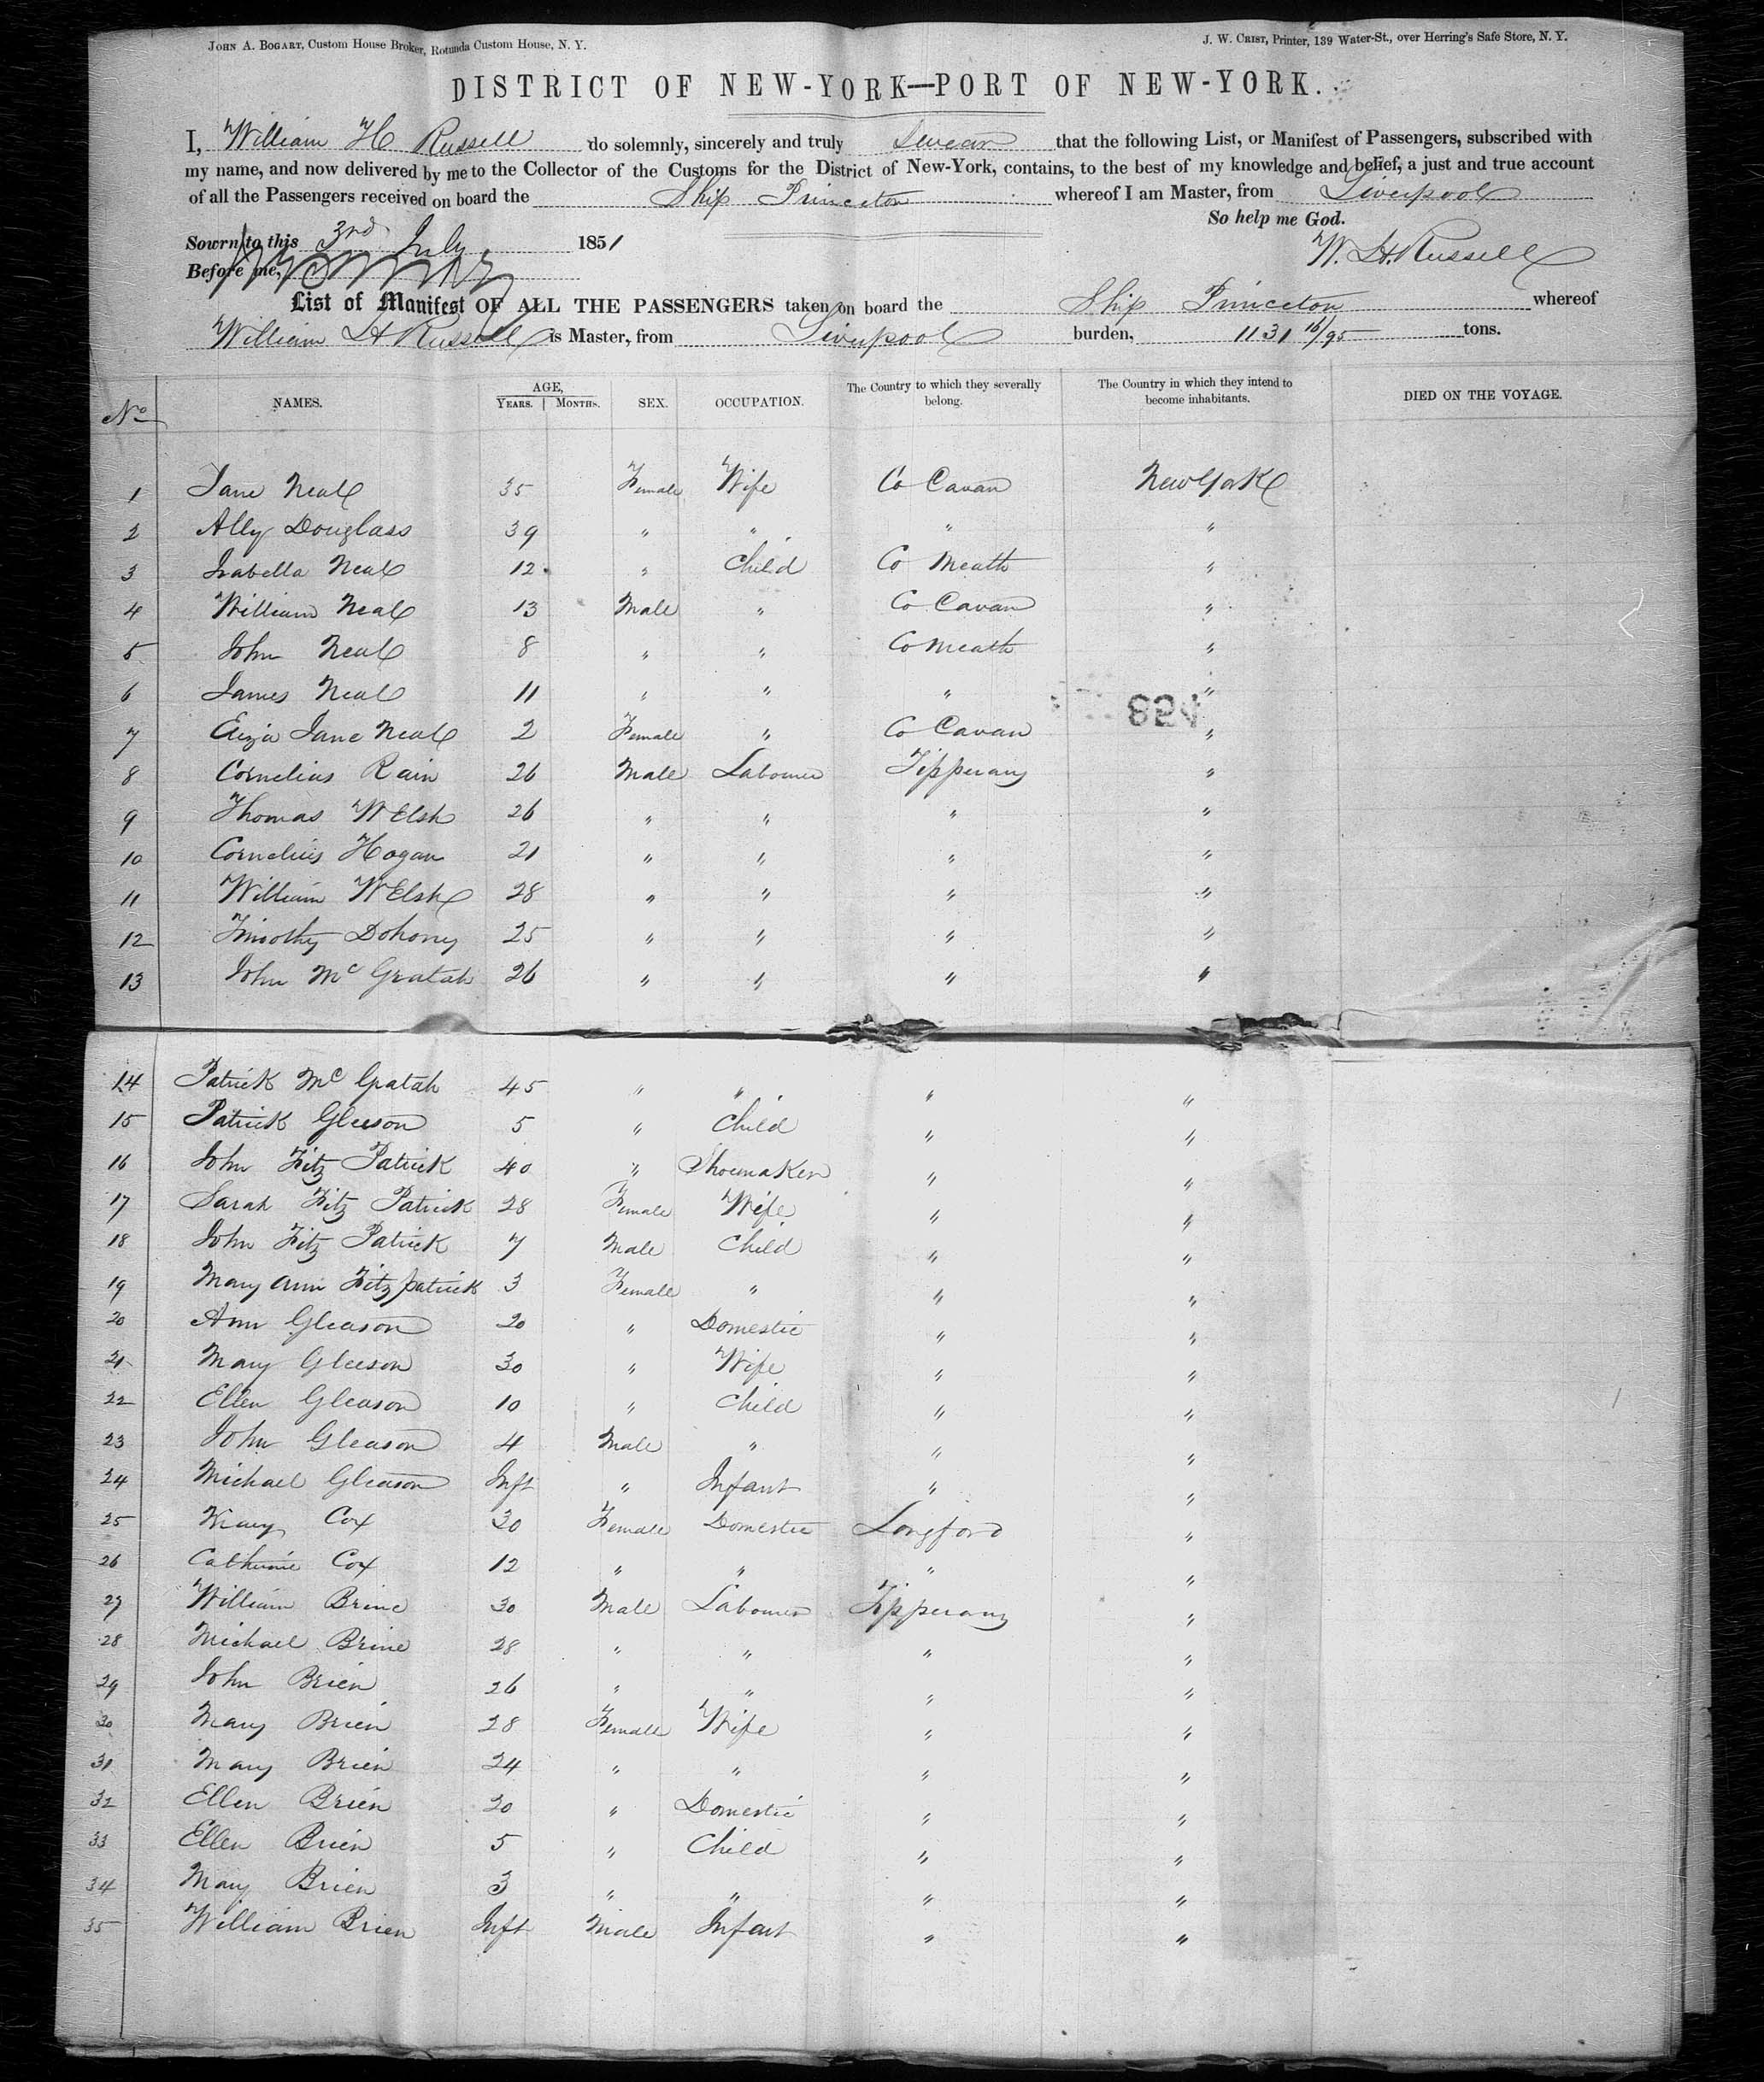 JOHN A. BOGART, Custom House Broker, Rotunda Custom House, N. Y.
J. W. CRIST, Printer, 139 Water-St., over Herring's Safe Store, N. Y.
DISTRICT OF NEW-YORK—PORT OF NEW-YORK.
I, William H Russell do solemnly, sincerely and truly Swear that the following List, or Manifest of Passengers, subscribed with
my name, and now delivered by me to the Collector of the Customs for the District of New-York, contains, to the best of my knowledge and belief, a just and true account
of all the Passengers received on board the Ship Princeton whereof I am Master, from Liverpool
So help me God.
Sowrn to this 3rd July 1851
W. H. Russell
Before me,
List of Manifest OF ALL THE PASSENGERS taken on board the Ship Princeton whereof
William H Russell is Master, from Liverpool burden, 1131 16/95 tons.
No NAMES. AGE, YEARS. MONTHS. SEX. OCCUPATION. The Country to which they severally belong. The Country in which they intend to become inhabitants. DIED ON THE VOYAGE.
1 Jane Neal 35 Female Wife Co Cavan New York
2 Ally Douglass 39 " " " "
3 Isabella Neal 12 " Child Co Meath "
4 William Neal 13 Male " Co Cavan "
5 John Neal 8 " " Co Meath "
6 James Neal 11 " " " "
7 Eliza Jane Neal 2 Female " Co Cavan "
8 Cornelius Rain 26 Male Labourer Tipperary "
9 Thomas Welsh 26 " " " "
10 Cornelius Hogan 21 " " " "
11 William Welsh 28 " " " "
12 Timothy Dohony 25 " " " "
13 John Mc Gratah 26 " " " "
14 Patrick Mc Gratah 45 " " " "
15 Patrick Gleeson 5 " Child " "
16 John Fitz Patrick 40 " Shoemaker " "
17 Sarah Fitz Patrick 28 Female Wife " "
18 John Fitz Patrick 7 Male Child " "
19 Mary Ann Fitzpatrick 3 Female " " "
20 Ann Gleason 20 " Domestic " "
21 Mary Gleeson 30 " Wife " "
22 Ellen Gleason 10 " Child " "
23 John Gleason 4 Male " " "
24 Michael Gleason Inft " Infant " "
25 Mary Cox 30 Female Domestic Longford "
26 Catherine Cox 12 " " " "
27 William Brine 30 Male Labourer Tipperary "
28 Michael Brine 28 " " " "
29 John Brien 26 " " " "
30 Mary Brien 28 Female Wife " "
31 Mary Brien 24 " " " "
32 Ellen Brien 20 " Domestic " "
33 Ellen Brien 5 " Child " "
34 Mary Brien 3 " " " "
35 William Brien Inft Male Infant " "